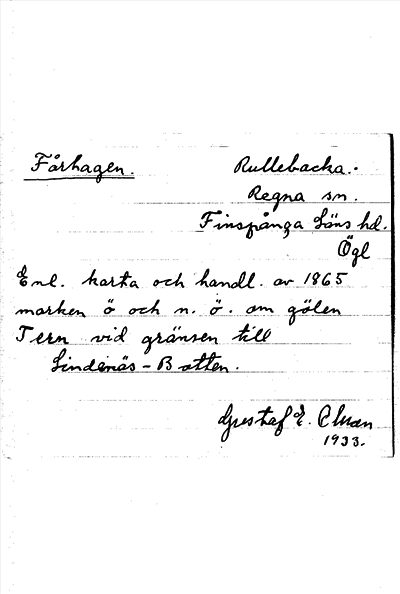 Fårhagen. Rullebacka.
Regna sn.
Finspånga Läns hd.
Ögl
Enl. karta och handl. av 1865
marken ö och n. ö. om gölen
Tern vid gränsen till
Lindenäs-Botten.
Gustaf E.
1933.